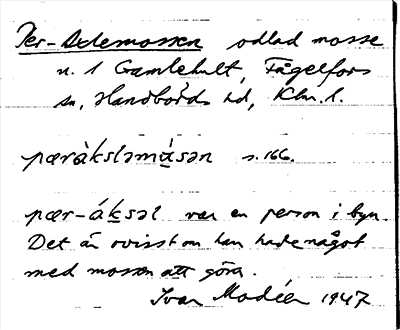 Per-Axlemossen odlad mosse
u. 1 Gamlehult, Fågelfors
sn, Handbörds hd, Klm. l.
pæràkslǝmásǝn s. 166.
pær-áksǝl var en person i byn.
Det är ovisst om han hade något
med mossen att göra.
Ivar Modéer 1947